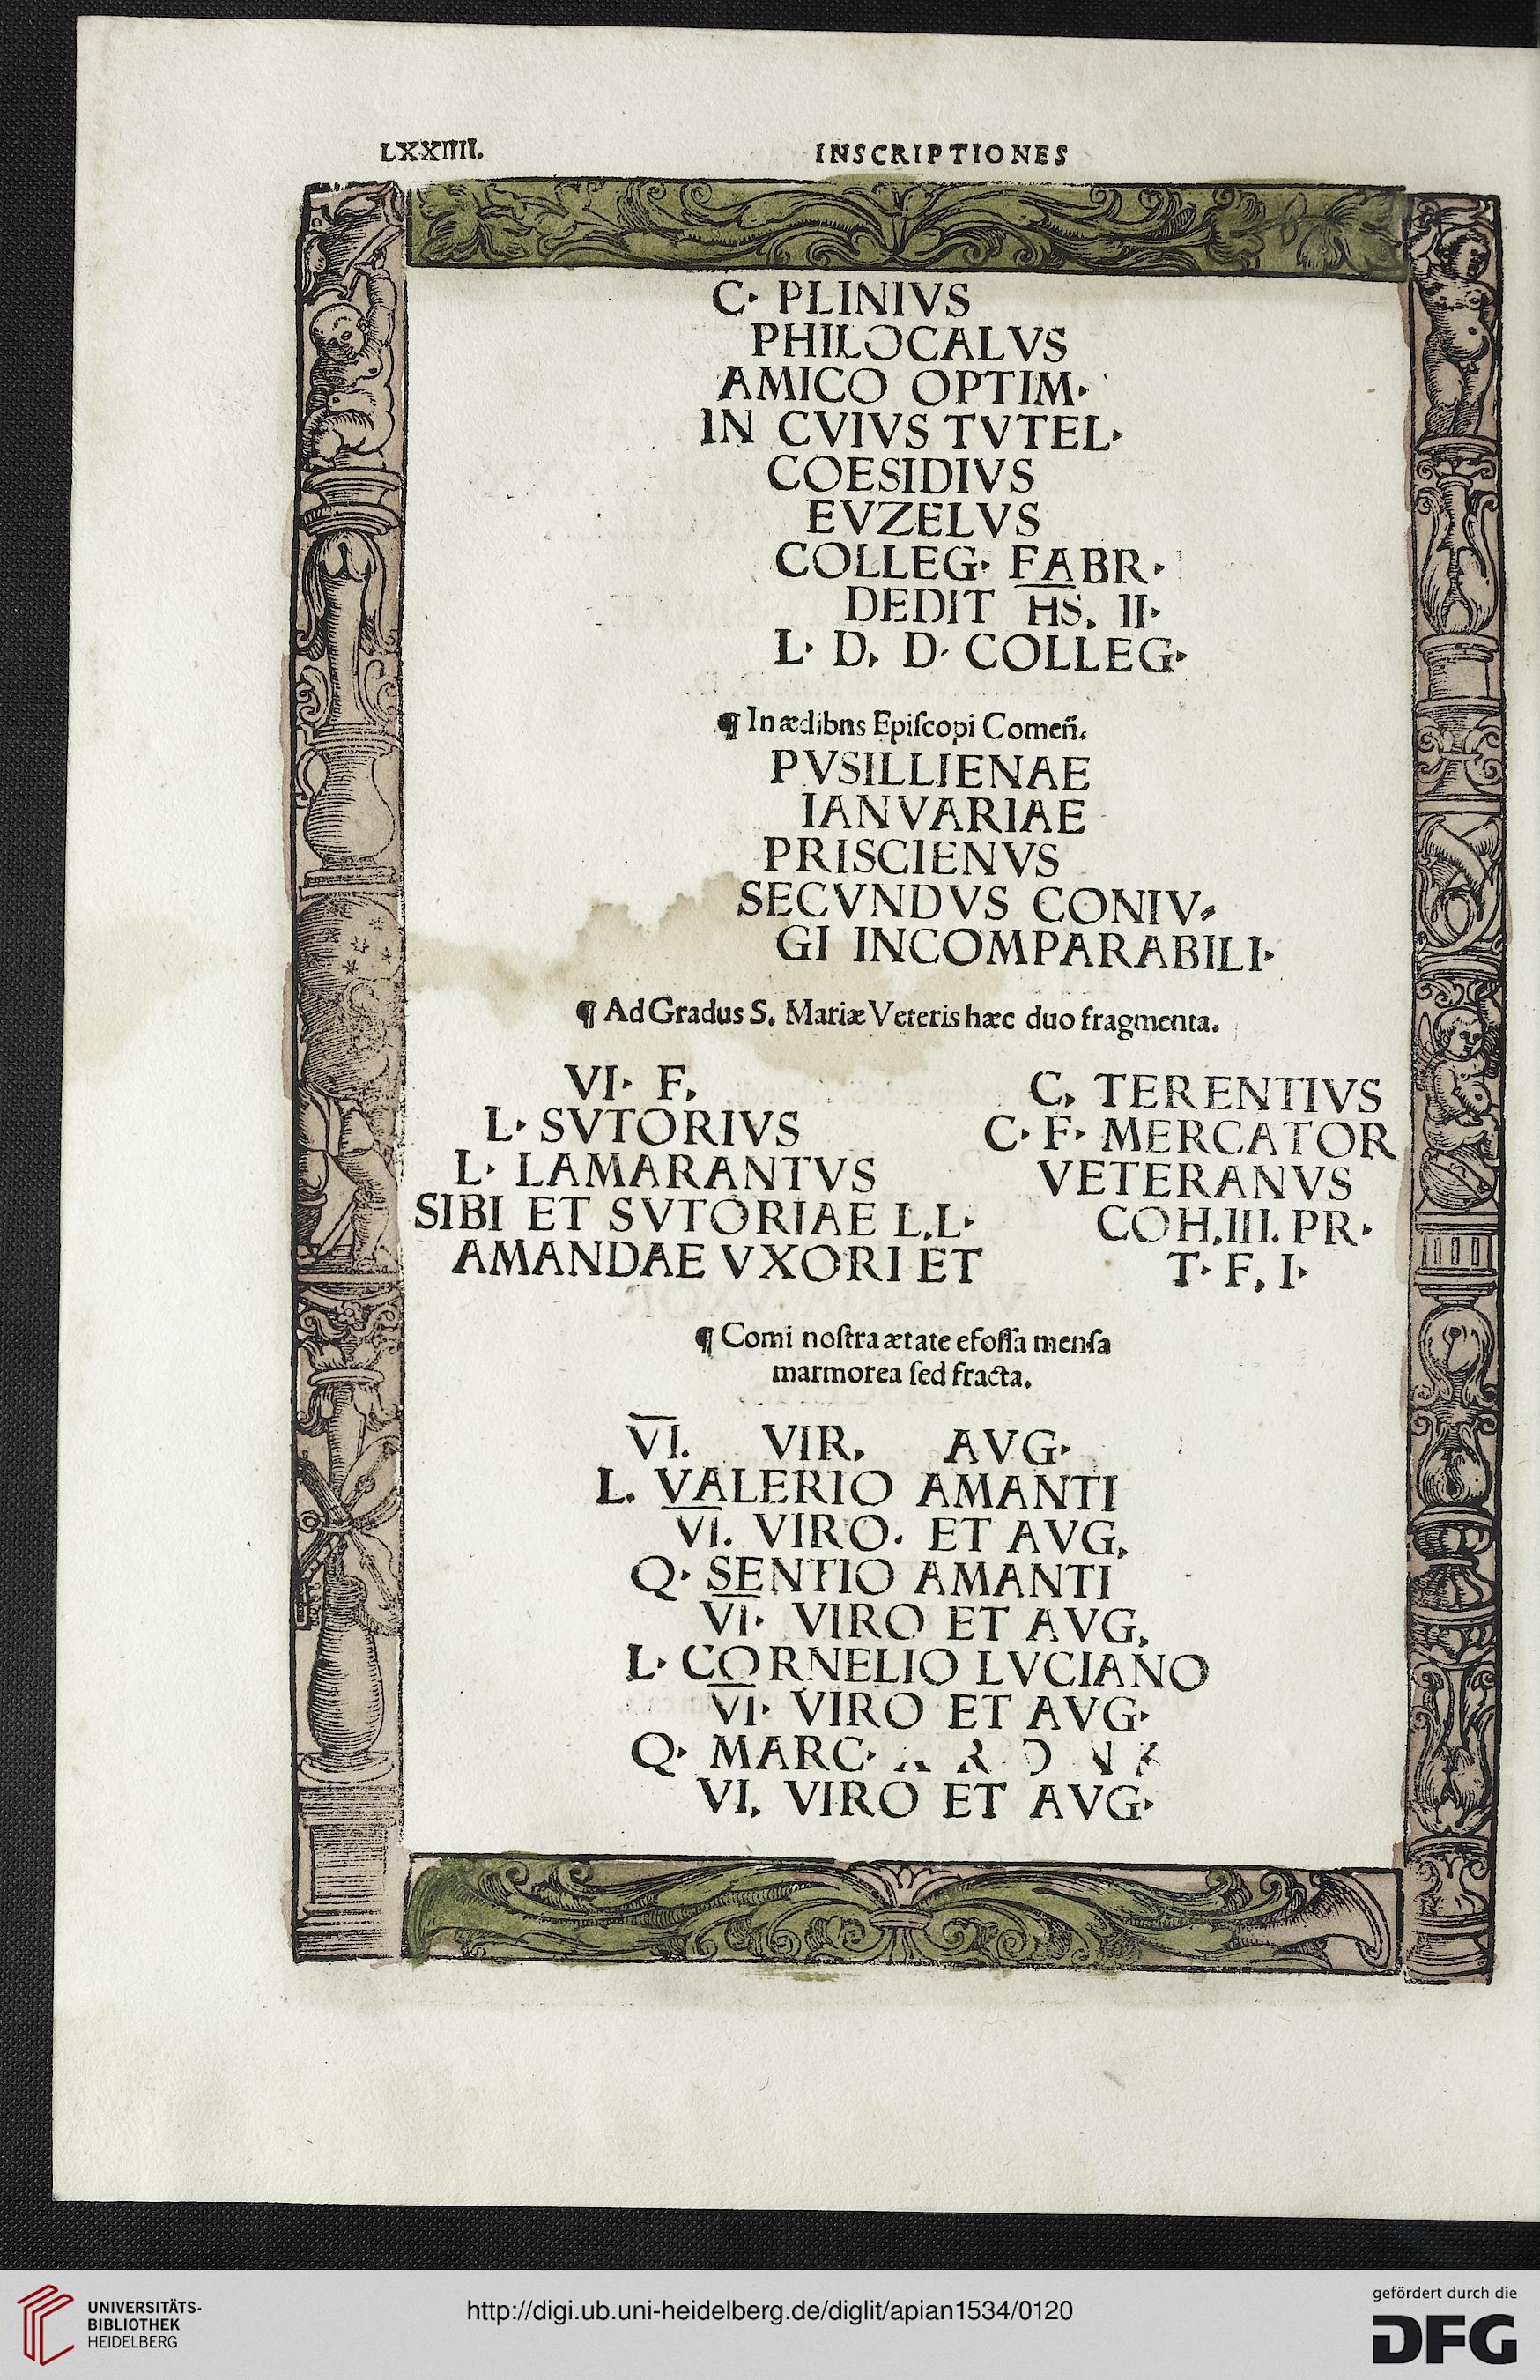 LXXIIII.
INSCRIPTIONES
C· PLINIVS
PHILOCALVS
AMICO OPTIM·
IN CVIVS TVTEL·
COESIDIVS
EVZELVS
COLLEG· FABR·
DEDIT HS. II·
L· D. D· COLLEG·
¶ In ædibns Epiſcopi Comen̄.
PVSILLIENAE
IANVARIAE
PRISCIENVS
SECVNDVS CONIV⸗
GI INCOMPARABILI·
¶ Ad Gradus S. Mariæ Veteris hæc duo fragmenta.
VI· F.
L· SVTORIVS
L· LAMARANTVS
SIBI ET SVTORIAE L.L·
AMANDAE VXORI ET
C. TERENTIVS
C· F· MERCATOR
VETERANVS
COH.III. PR·
T· F. I·
¶ Comi noſtra ætate efoſſa menſa
marmorea ſed fracta.
V̅I̅. VIR. AVG·
L. VALERIO AMANTI
V̅I̅. VIRO. ET AVG.
Q· SENTIO AMANTI
V̅I̅· VIRO ET AVG.
L· CORNELIO LVCIANO
V̅I̅· VIRO ET AVG·
Q· MARC·
VI. VIRO ET AVG·
UNIVERSITÄTS-
BIBLIOTHEK
HEIDELBERG
http://digi.ub.uni-heidelberg.de/diglit/apian1534/0120
gefördert durch die
DFG